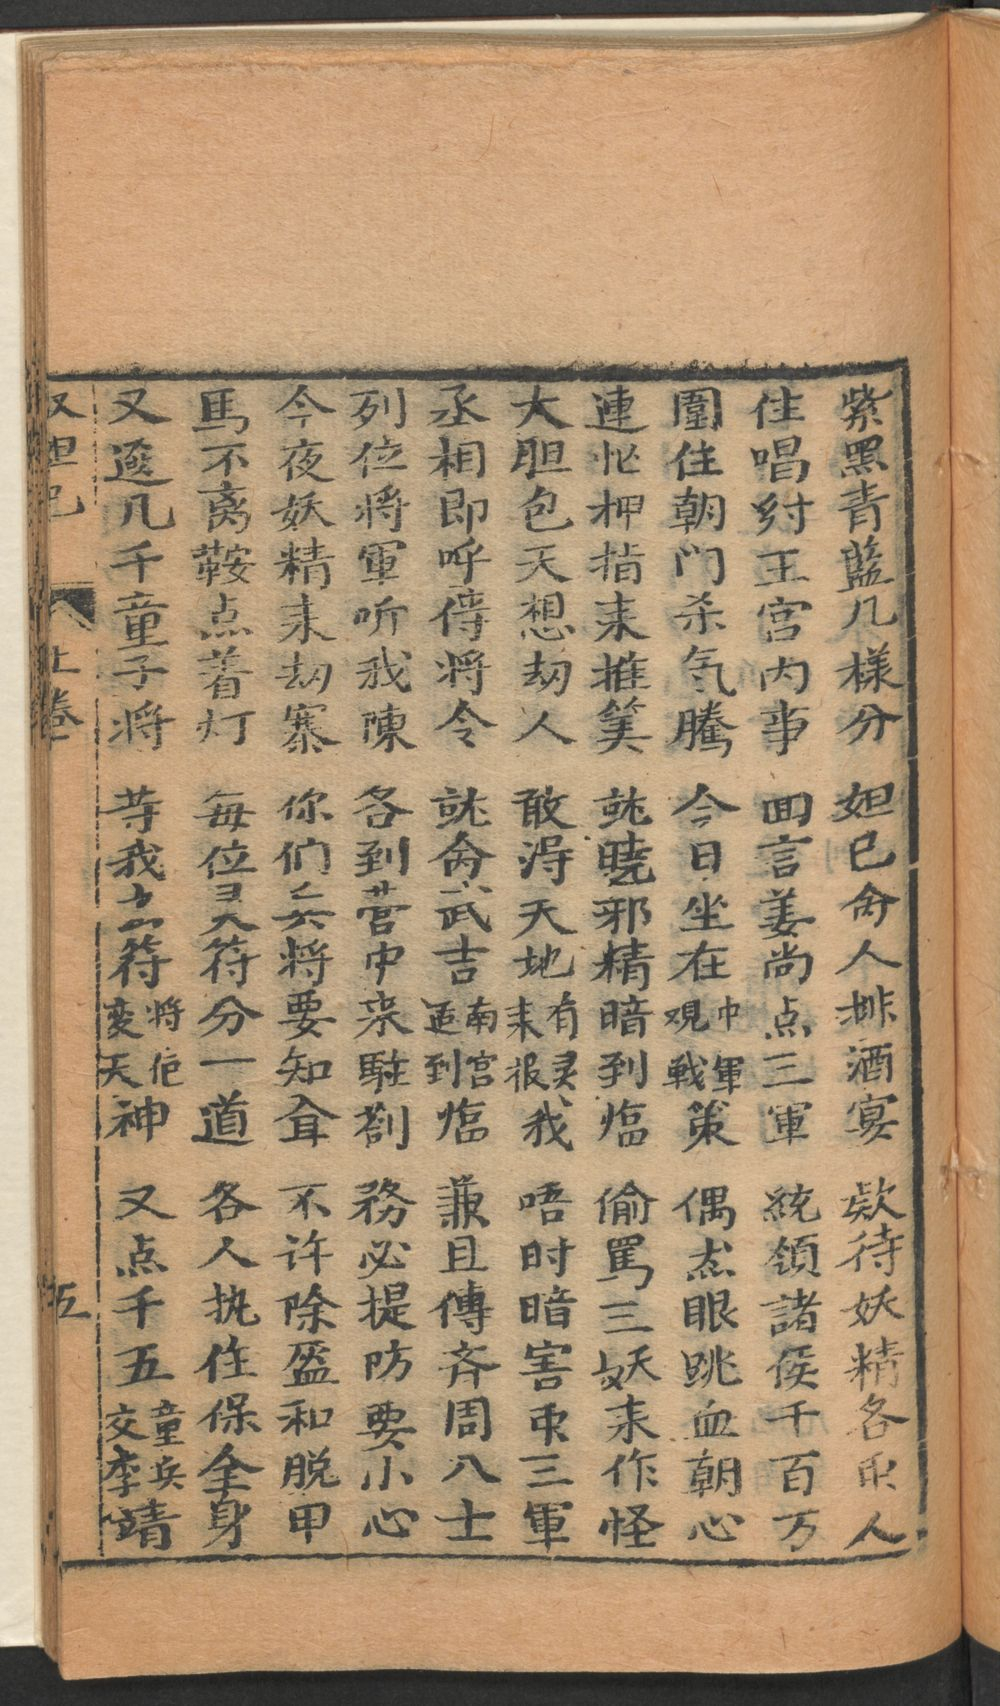 紫黑青藍几樣分 妲已命人排酒宴 欵待妖精各臣人
住唱紂王宫内事 囬言姜尚点三軍 統領諸侯千百万
圍住朝门杀気騰 今日坐在中軍观戰策 偶然眼跳血朝心
連忙押指耒推筭 就曉邪精暗到临 偷罵三妖耒作怪
大胆包天想劫人 敢淂天地有灵耒报我 唔时暗害吏三軍
丞相即呼传将令 就命武吉南宫适到临 兼且傳斉周八士
列位将軍听我陳 各到营中来駐劄 務必提防要小心
今夜妖精耒劫寨 你们兵将要知音 不许除盔和脱甲
馬不离鞍点着灯 每位灵符分一道 各人执住保全身
又选几千童子将 荨我灵符将佢变天神 又点千五童兵交李靖
又妲已 上卷 五